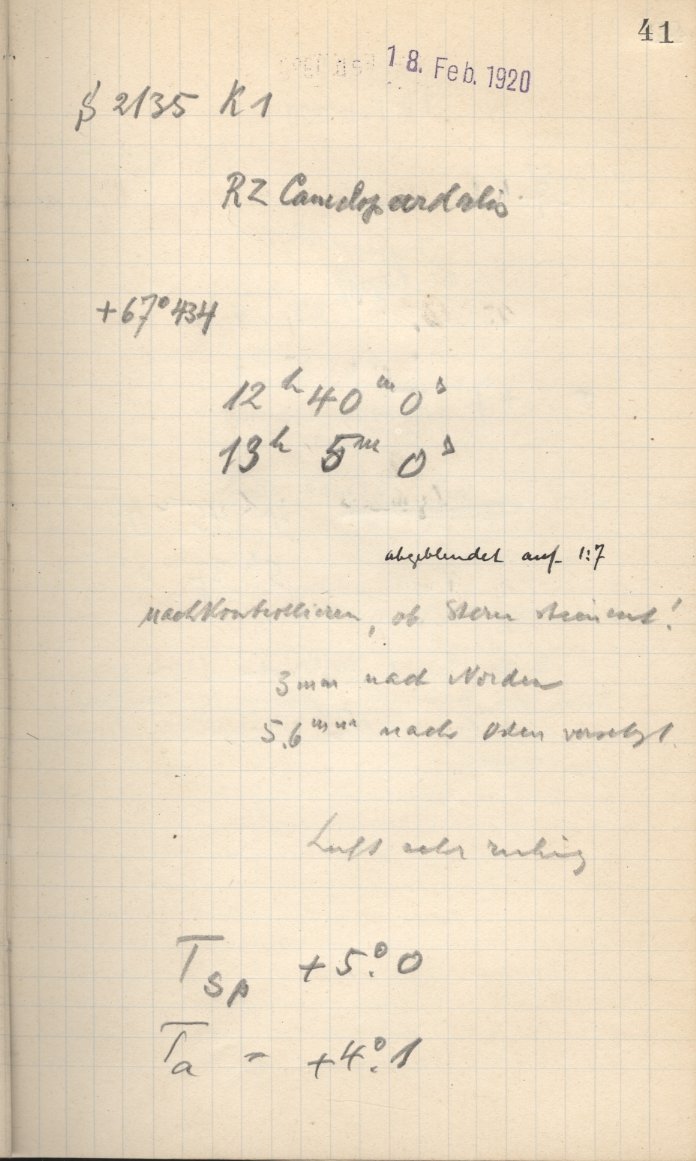 41
18. Feb. 1920
§ 2135 K1
RZ Camelopardalis
+67°434
12h 40m 0s
13h 5m 0s
abgeblendet auf 1:7
nachkontrollieren, ob Stern stimmt!
3mm nach Norden
5.6mm nach Osten versetzt
Luft sehr ruhig
Tsp +5°.0
Ta = +4°.1